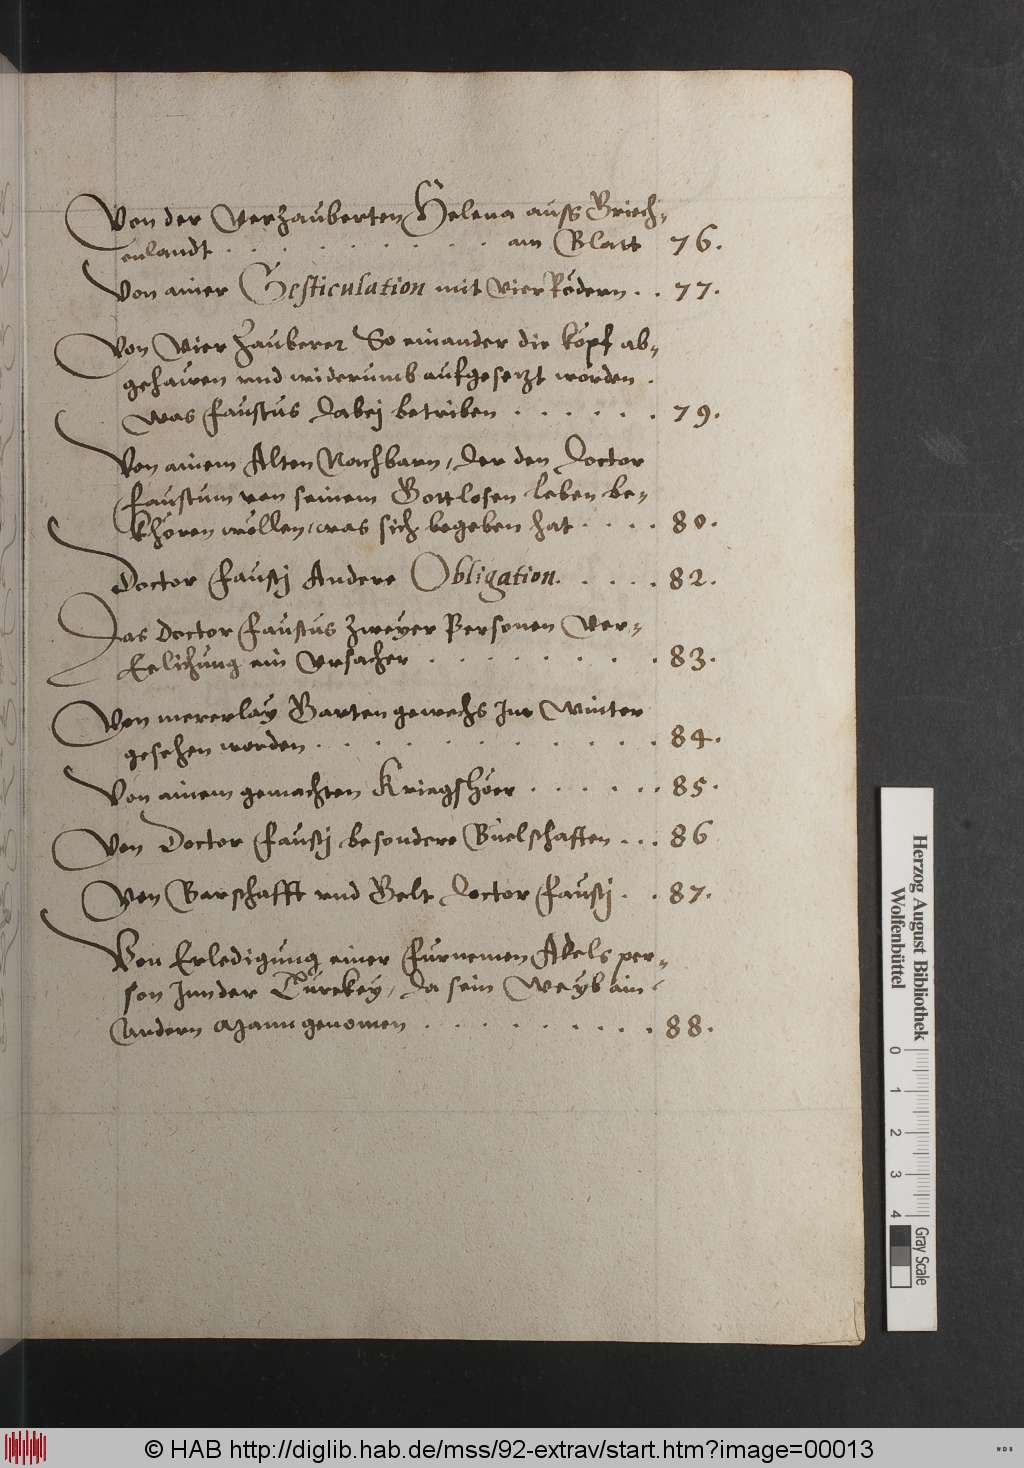 Von der Verzauberten Helena auss Griech-
enlandt . . . . . . . . . am Blatt 76.
Von ainer Gesticulation mit vier Redern . . 77.
Von Vier Zauberer So einander die köpf ab-
gehawen vnd widerumb aufgesetzt worden .
was Faustus dabej betriben . . . . . . 79.
Von ainem Alten Nachbarn, der den Doctor
Faustum von seinem Gottlosen leben be-
khören wöllen, was sich begeben hat . . . . 80.
Doctor Faustj Andere Obligation. . . . . 82.
Das Doctor Faustus Zweyer Personen Ver-
Eelichung ein vrsacher . . . . . . . . 83.
Von mererlay Garten gewechs Im Winter
gesehen worden . . . . . . . . . . . . 84.
Von ainem gemachten Kriegshöer . . . . . . 85.
Von Doctor Faustj besondere Buelschafften . . . 86
Von Barschafft vnd Gelt Doctor Faustj . . 87.
Von Erledigung einer furnemen Adels per-
son Inn der Türckey, da sein Weyb ain
Andern Mann genomen . . . . . . . . . . 88.
Herzog August Bibliothek
Wolfenbüttel
0 1 2 3 4
Gray Scale
© HAB http://diglib.hab.de/mss/92-extrav/start.htm?image=00013
WDB